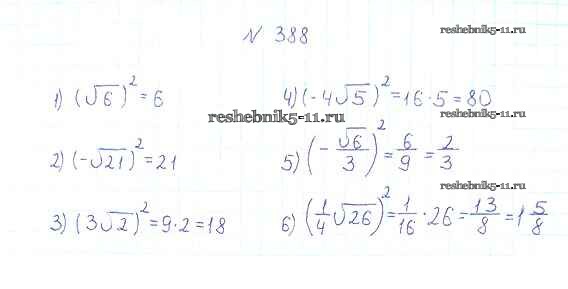 № 388
reshebnik5-11.ru
1) (√6)² = 6
4) (-4√5)² = 16 · 5 = 80
reshebnik5-11.ru
2) (-√21)² = 21
5) (-√6/3)² = 6/9 = 2/3
reshebnik5-11.ru
3) (3√2)² = 9 · 2 = 18
6) (1/4 √26)² = 1/16 · 26 = 13/8 = 1 5/8